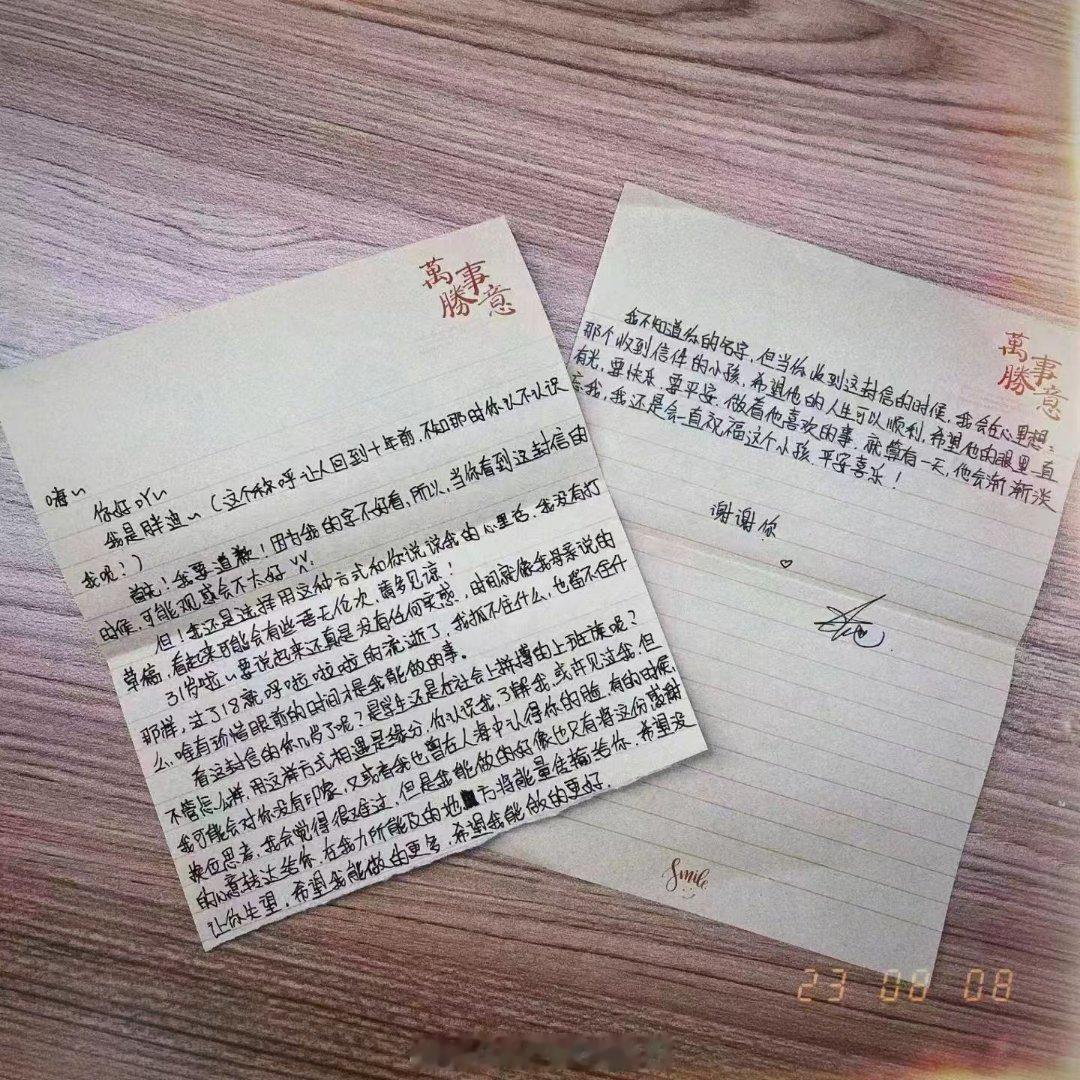 萬事
勝意
嗨~
你好吖~
我是胖迪~(这个称呼让人回到十年前,不知那时你认不认识
我呢?)
首先!我要道歉!因为我的字不好看,所以,当你看到这封信的
时候,可能观感会不太好
但!我还是选择用这种方式和你说说我的心里话,我没有打
草稿,看起来可能会有些语无伦次,请多见谅!
31岁啦~要说起来还真是没有任何实感,时间就像我母亲说的
那样,过了18就呼啦啦啦的流逝了,我抓不住什么,也留不住什
么,唯有珍惜眼前的时间才是我能做的事。
看这封信的你几岁了呢?是学生还是在社会上拼搏的上班族呢?
不管怎么样,用这样方式相遇是缘分,你认识我,了解我,或许见过我,但
我可能会对你没有印象,又或者我也曾在人海中认得你的脸,有的时候,
换位思考,我会觉得很难过,但是我能做的好像也只有将这份感谢
的心意转达给你,在我力所能及的地方将能量传输给你,希望没
让你失望,希望我能做的更多,希望我能做的更好.
萬事
勝意
我不知道你的名字,但当你收到这封信的时候,我会在心里想:
那个收到信件的小孩,希望他的人生可以顺利,希望他的眼里一直
有光,要快乐,要平安,做着他喜欢的事,就算有一天,他会渐渐淡
忘我,我还是会一直祝福这个小孩,平安喜乐!
谢谢你
Smile
23 08 08